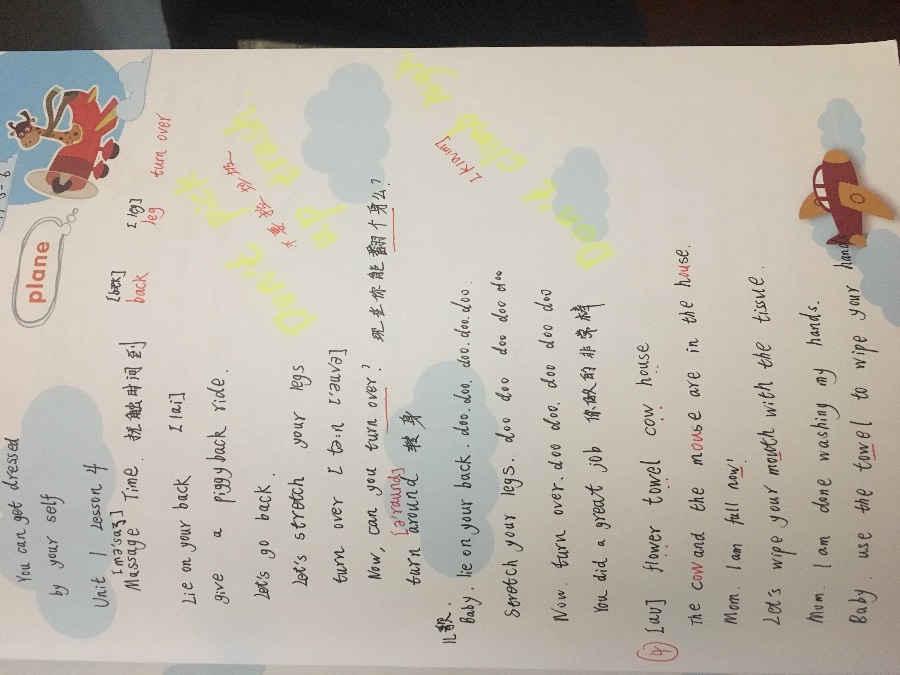 plane
You can get dressed
by your self
Unit 1 Lesson 4
[məsaʒ]
Massage Time. 抚触时间到
[bæk] [leg]
back leg turn over
Lie on your back [lai]
give a piggy back ride.
Let's go back.
Let's stretch your legs
turn over [tə:n ['əuvə]
Now, can you turn over? 现在你能翻个身么?
[ə'raund]
turn around 转身
Don't pick up trash
Don't climb high
[klaim]
儿歌.
Baby. lie on your back. doo. doo. doo. doo. doo.
Stretch your legs. doo doo doo doo doo
Now. turn over. doo doo. doo doo doo
You did a great job 你做的非常棒
④ [au] flower towel cow house
The cow and the mouse are in the house.
Mom. I am full now!
Let's wipe your mouth with the tissue.
Mum. I am done washing my hands.
Baby. use the towel to wipe your hands